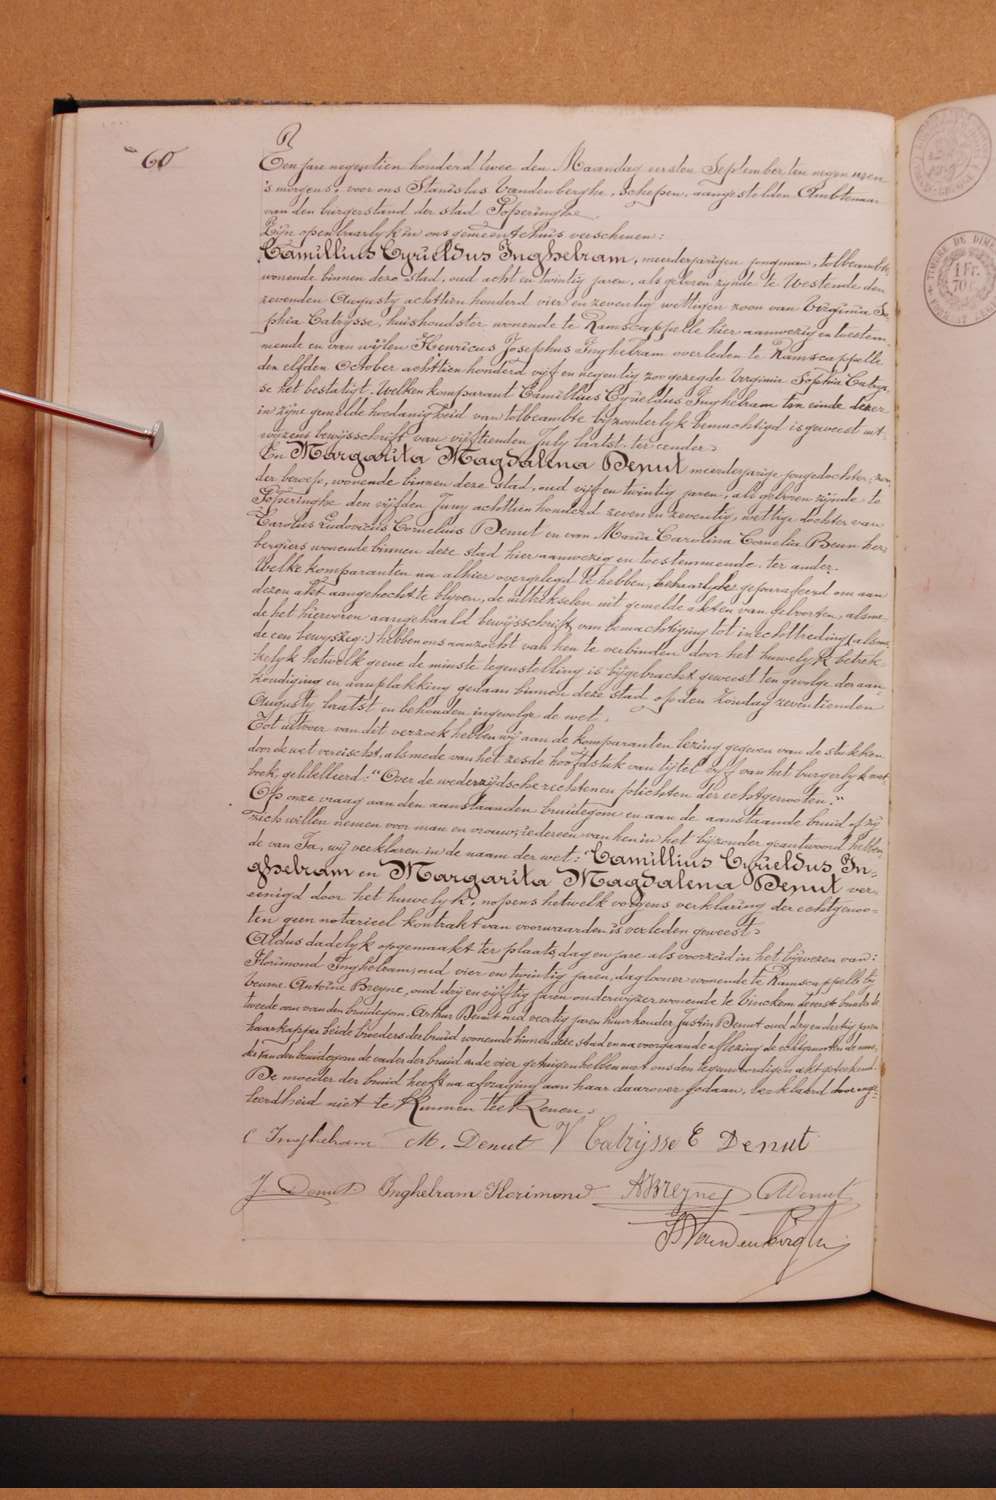 60
Een jare negentien honderd twee den Maandag eersten September ten negen uren
's morgens, voor ons Stanislas Vandenberghe, schepen, aangestelden Ambtenaar
van den burgerstand der stad Poperinghe.
Zijn openbaarlyk in ons gemeentehuis verschenen:
Camillius Cyrieldus Inghelram, meerderjarigen jongman, tolbeambte,
wonende binnen deze stad, oud acht en twintig jaren, als geboren zynde te Westende den
zevenden Augusty achttien honderd vier en zeventig wettigen zoon van Virginia So-
phia Catrysse, huishoudster wonende te Ramscappelle hier aanwezig en toestem-
mende en van wijlen Henricus Josephus Inghelram overleden te Ramscappelle
den elfden October achttien honderd vijf en negentig zoo gezegde Virginia Sophia Catrys-
se het bestatigt. Welken komparant Camillius Cyrieldus Inghelram ten einde dezer
in zijne gemelde hoedanigheid van tolbeambte byzonderlyk bemachtigd is geweest uit-
wijzens bewijsschrift van vijftienden July laatst. ter eender
En Margarita Magdalena Denut meerderjarige jongedochter, zon-
der beroep, wonende binnen deze stad, oud vijf en twintig jaren, als geboren zijnde te
Poperinghe den vijfden Juny achttien honderd zeven en zeventig, wettige dochter van
Carolus Ludovicus Cornelius Denut en van Maria Carolina Cornelia Beun her-
bergiers wonende binnen deze stad hier aanwezig en toestemmende. ter ander.
Welke komparanten na alhier overgelegd te hebben, behoorlyk geparafeerd om aan
dezen akt aangehecht te blyven, de uittreksels uit gemelde akten van geboorten, alsme-
de het hiervoren aangehaald bewijsschrift van bemachtiging tot inechttreding (alsme-
de een bewyszeg:) hebben ons aanzocht van hen te verbinden door het huwelyk betrek-
kelyk hetwelk geene de minste tegenstelling is bijgebracht geweest ten gevolge der aan-
kondiging en aanplakking gedaan binnen deze stad op den Zondag zeventienden
Augusty laatst en behouden ingevolge de wet.
Tot uitvoer van dit verzoek hebben wij aan de komparanten lezing gegeven van de stukken
door de wet vereischt, alsmede van het zesde hoofdstuk van tijtel vyf van het burgerlyk wet-
boek, getitelleerd: "Over de wederzijdsche rechten en plichten der echtgenooten."
Op onze vraag aan den aanstaanden bruidegom en aan de aanstaande bruid of zij
zich willen nemen voor man en vrouw, iedereen van hen in het bijzonder geantwoord hebben-
de van Ja, wij verklaren in de naam der wet: Camillius Cyrieldus In-
ghelram en Margarita Magdalena Denut ver-
eenigd door het huwelyk, nopens hetwelk volgens verklaring der echtgenoo-
ten geen notarieel kontrakt van voorwaarden is verleden geweest
Aldus dadelyk opgemaakt ter plaats, dag en jare als voorzeid in het bijwezen van:
Florimond Inghelram, oud vier en twintig jaren, daglooner wonende te Ramscappelle by
Veurne. Antoine Breyne, oud drij en vijftig jaren onderwijzer wonende te Vinckem de eerste broeder de
tweede oom van den bruidegom. Arthur Denut oud veertig jaren huurhouder Justin Denut oud dry en dertig jaren
haarkapper beide broeders der bruid wonende binnen deze stad en na voorgaande aflezing de echtgenooten de moe-
der van den bruidegom de vader der bruid en de vier getuigen hebben met ons den tegenwoordigen akt geteekend.
De moeder der bruid heeft na afvraging aan haar daarover gedaan, verklaard door onge-
leerdheid niet te kunnen teekenen.
C Inghelram M. Denut V Catrysse C Denut
J. Denut Inghelram Florimond ABreyne ADenut
S Vandenberghe
TIMBRE DE DIM
1 Fr.
70